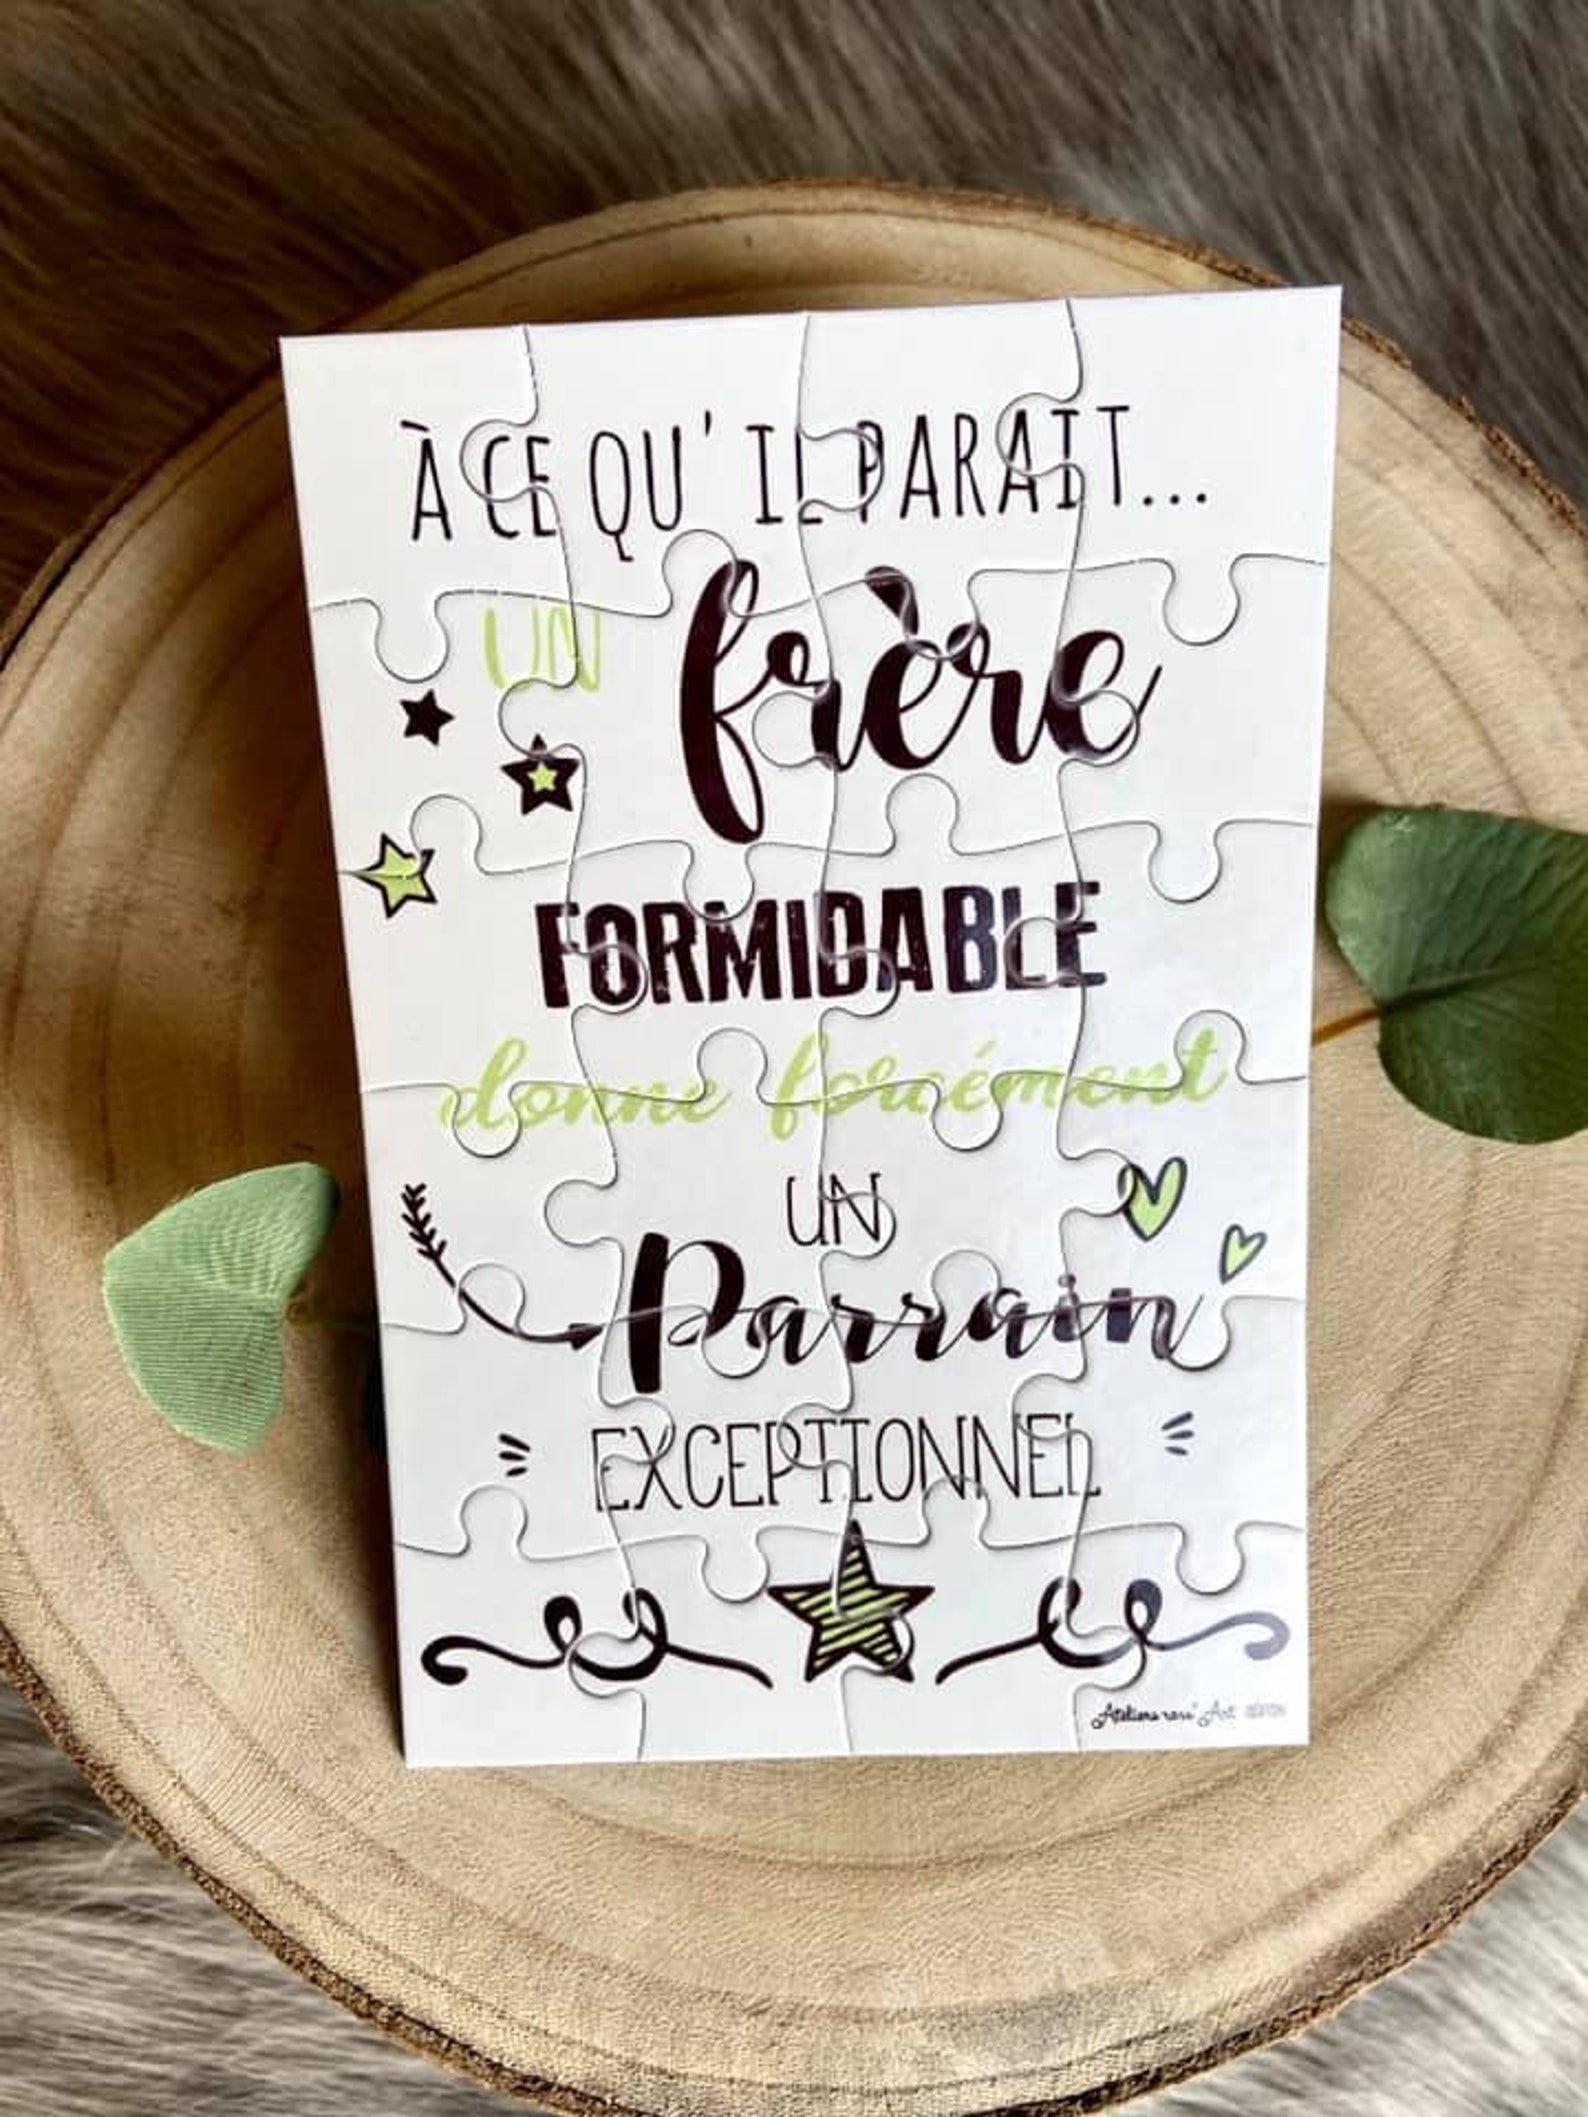 À CE QU'IL PARAIT...
UN frère
FORMIDABLE
donne forcément
UN
Parrain
EXCEPTIONNEL